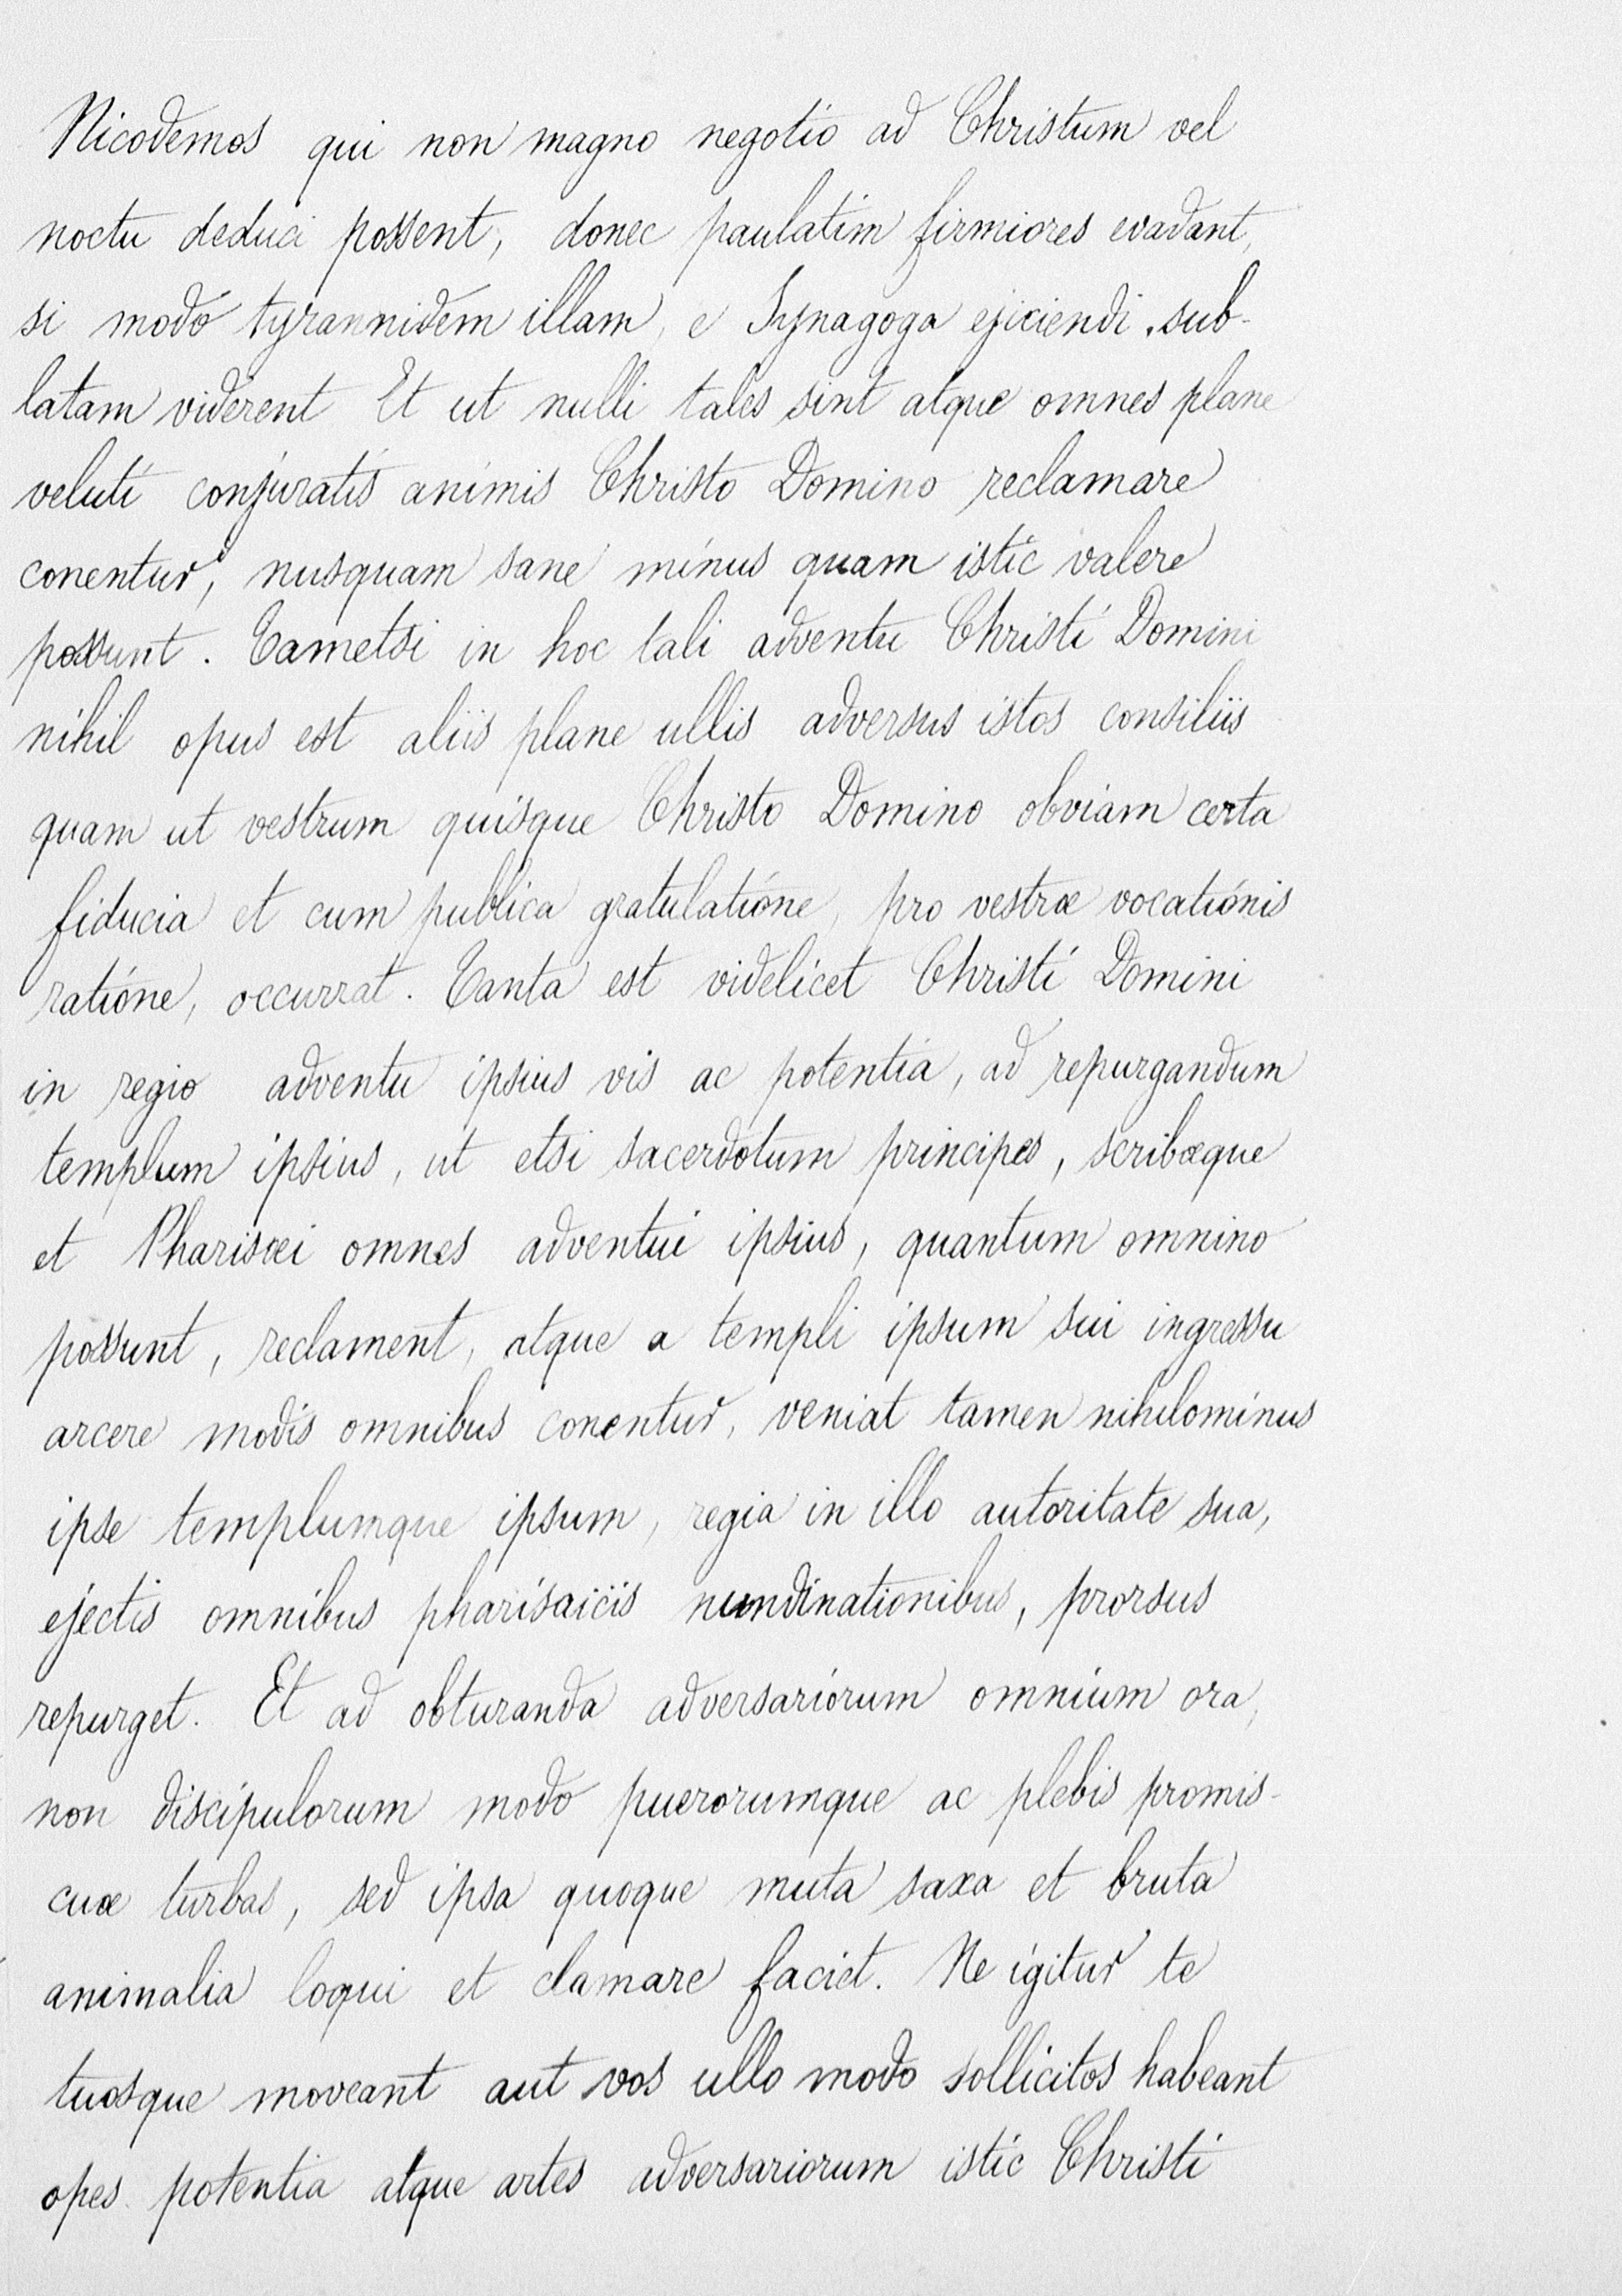 Nicodemos qui non magno negotio ad Christum vel
noctu deduci possent, donec paulatim firmiores evadant,
si modo tyrannidem illam, e Synagoga ejiciendi, sub-
latam viderent Et ut nulli tales sint atque omnes plane
veluti conjuratis animis Christo Domino reclamare
conentur, nusquam sane minus quam istic valere
possunt. Tametsi in hoc tali adventu Christi Domini
nihil opus est aliis plane ullis adversus istos consiliis
quam ut vestrum quisque Christo Domino obviam certa
fiducia et cum publica gratulatione, pro vestræ vocationis
ratione, occurrat. Tanta est videlicet Christi Domini
in regio adventu ipsius vis ac potentia, ad repurgandum
templum ipsius, ut etsi sacerdotum principes, scribæque
et Pharisæi omnes adventui ipsius, quantum omnino
possunt, reclament, atque a templi ipsum sui ingressu
arcere modis omnibus conentur, veniat tamen nihilominus
ipse templumque ipsum, regia in illo autoritate sua,
ejectis omnibus pharisaicis nundinationibus, prorsus
repurget. Et ad obturanda adversariorum omnium ora,
non discipulorum modo puerorumque ac plebis promis-
cuæ turbas, sed ipsa quoque muta saxa et bruta
animalia loqui et clamare faciet. Ne igitur te
tuosque moveant aut vos ullo modo sollicitos habeant
opes potentia atque artes adversariorum istic Christi